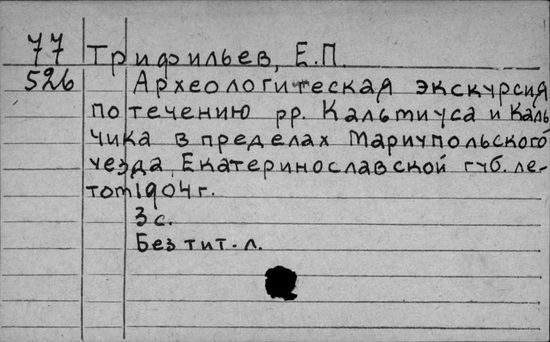 77 Трифильев, Е.П.
526 Археологическая экскурсия
по течению рр. Кальмиуса и Каль
чика в пределах Мариупольского
уезда, Екатеринославской губ. ле-
том 1904 г.
3 с.
Без тит. л.